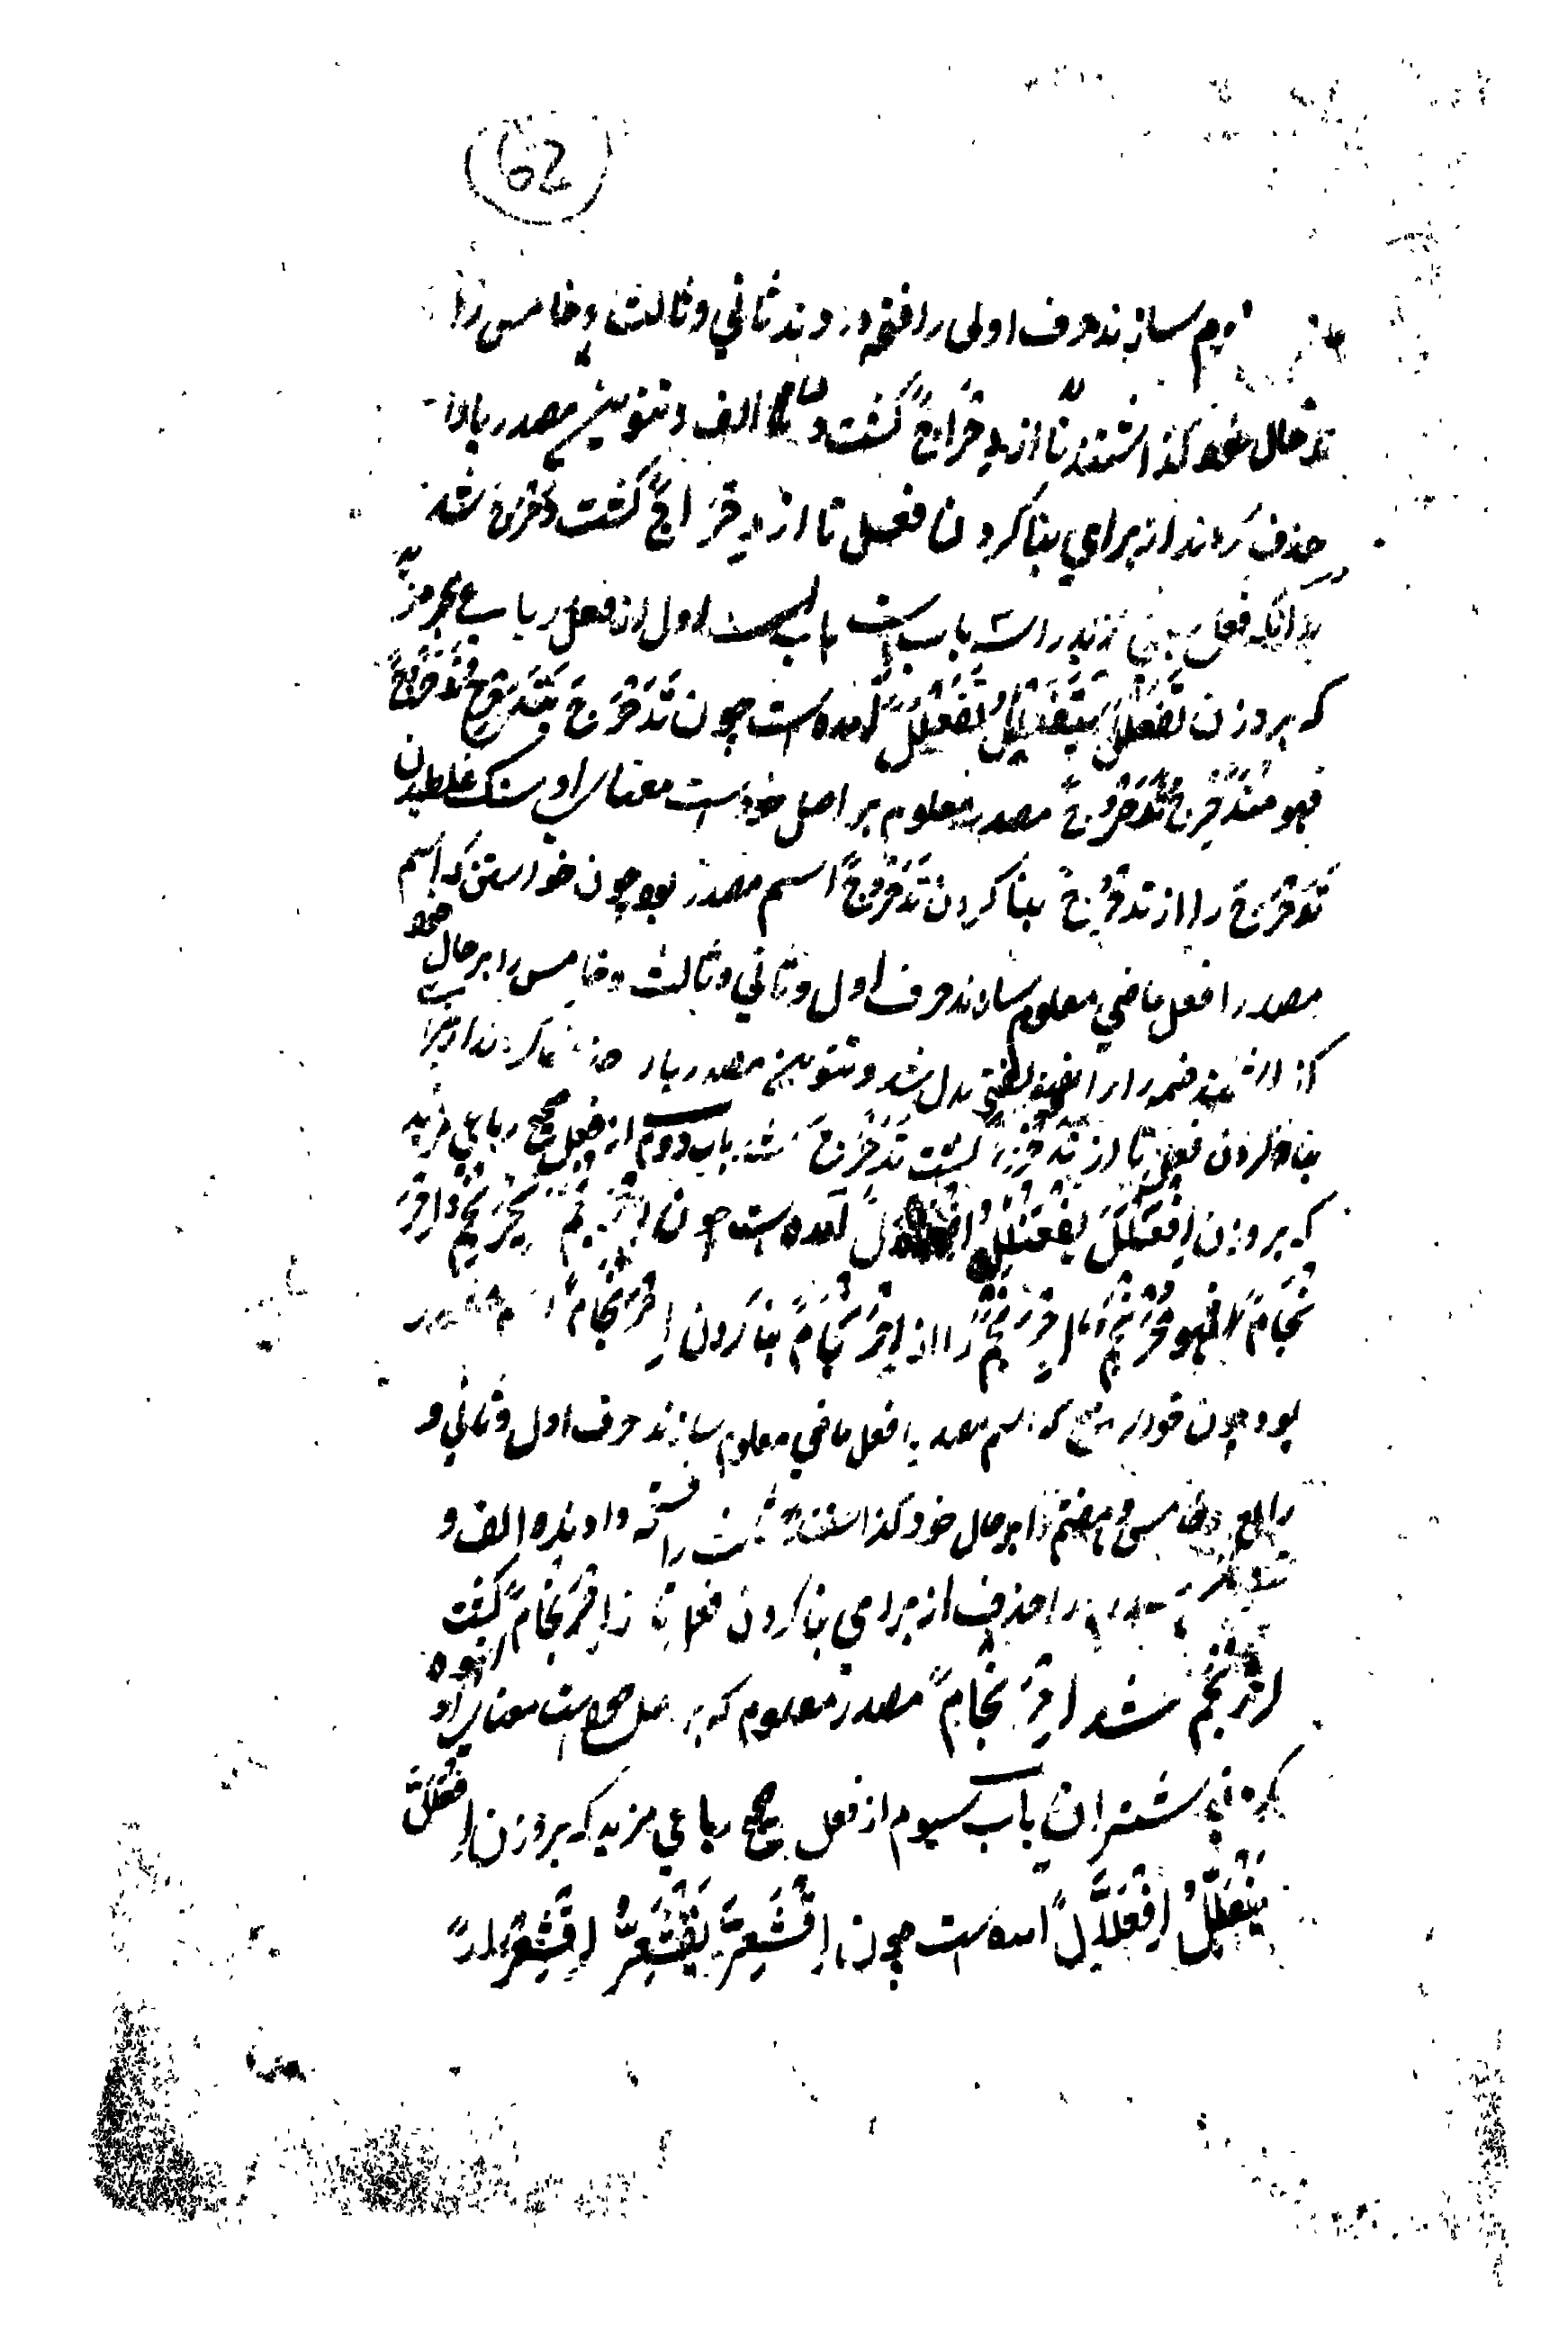 62
سازند حرف اولی را فتحه دادند ثاني و ثالث و خامس را
بر حال خود گذاشتند تا از دِحْرَاجً گشت الف و تنوین مصدر یا را
حذف کردند از براي بنا کردن فعل تا از دِحْرَاجً گشت دَحْرَجَ شد
بدانکه فعل رباعي مزید را سه باب است باب اول از فعل رباعي مزید
که بر وزن تَفَعْلَلَ يَتَفَعْلَلُ تَفَعْلُلً آمده است چون تَدَحْرَجَ يَتَدَحْرَجُ تَدَحْرُجً
فهو مُتَدَحْرِجٌ تَدَحْرُجً مصدر معلوم بر اصل خود است معناي او سنک غلطیدن
تَدَحْرَجَ را از تدحرج بنا کردن تَدَحْرُجً اسم مصدر بود چون خواستن که اسم
مصدر را فعل ماضي معلوم سازند حرف اول و ثاني و ثالث و خامس را بر حال خود
گذاشتند ضمه را را بفتح بدل شد و تنوین مصدر را حذف کردند از براي
بنا کردن فعل تا از تَدَحْرُجً گشت تَدَحْرَجَ شد باب دوم از فعل صحیح رباعي مزید
که بر وزن اِفْعَنْلَلَ يَفْعَنْلِلُ آمده است چون اِحْرَنْجَمَ يَحْرَنْجِمُ اِحْرَ
نْجَامً فهو مُحْرَنْجِمٌ اِحْرَنْجَمَ را از اِحْرَنْجَامً بنا کردن اِحْرَنْجَامً اسم مصدر
بود چون خواستن که اسم مصدر را فعل ماضي معلوم سازند حرف اول و ثاني و
رابع و خامس و هفتم را بر حال خود گذاشتند ثالث را فتحه دادند الف و
تنوین مصدر را حذف از براي بنا کردن فعل تا از اِحْرَنْجَامً گشت
اِحْرَنْجَمَ شد اِحْرَنْجَامً مصدر معلوم که بر اصل خود است معناي او انبوه
شتران باب سیوم از فعل صحیح رباعي مزید که بر وزن اِفْعَلَلَّ
يَفْعَلِلُّ اِفْعِلَّالً آمده است چون اِقْشَعَرَّ يَقْشَعِرُّ اِقْشِعْرَارً